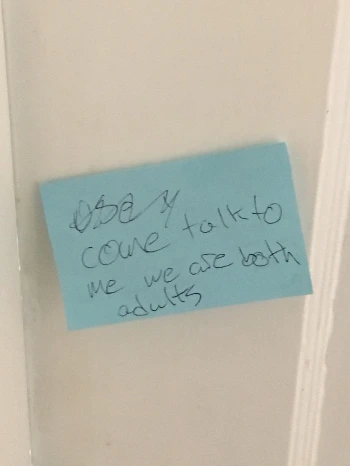 come talk to
me we are both
adults